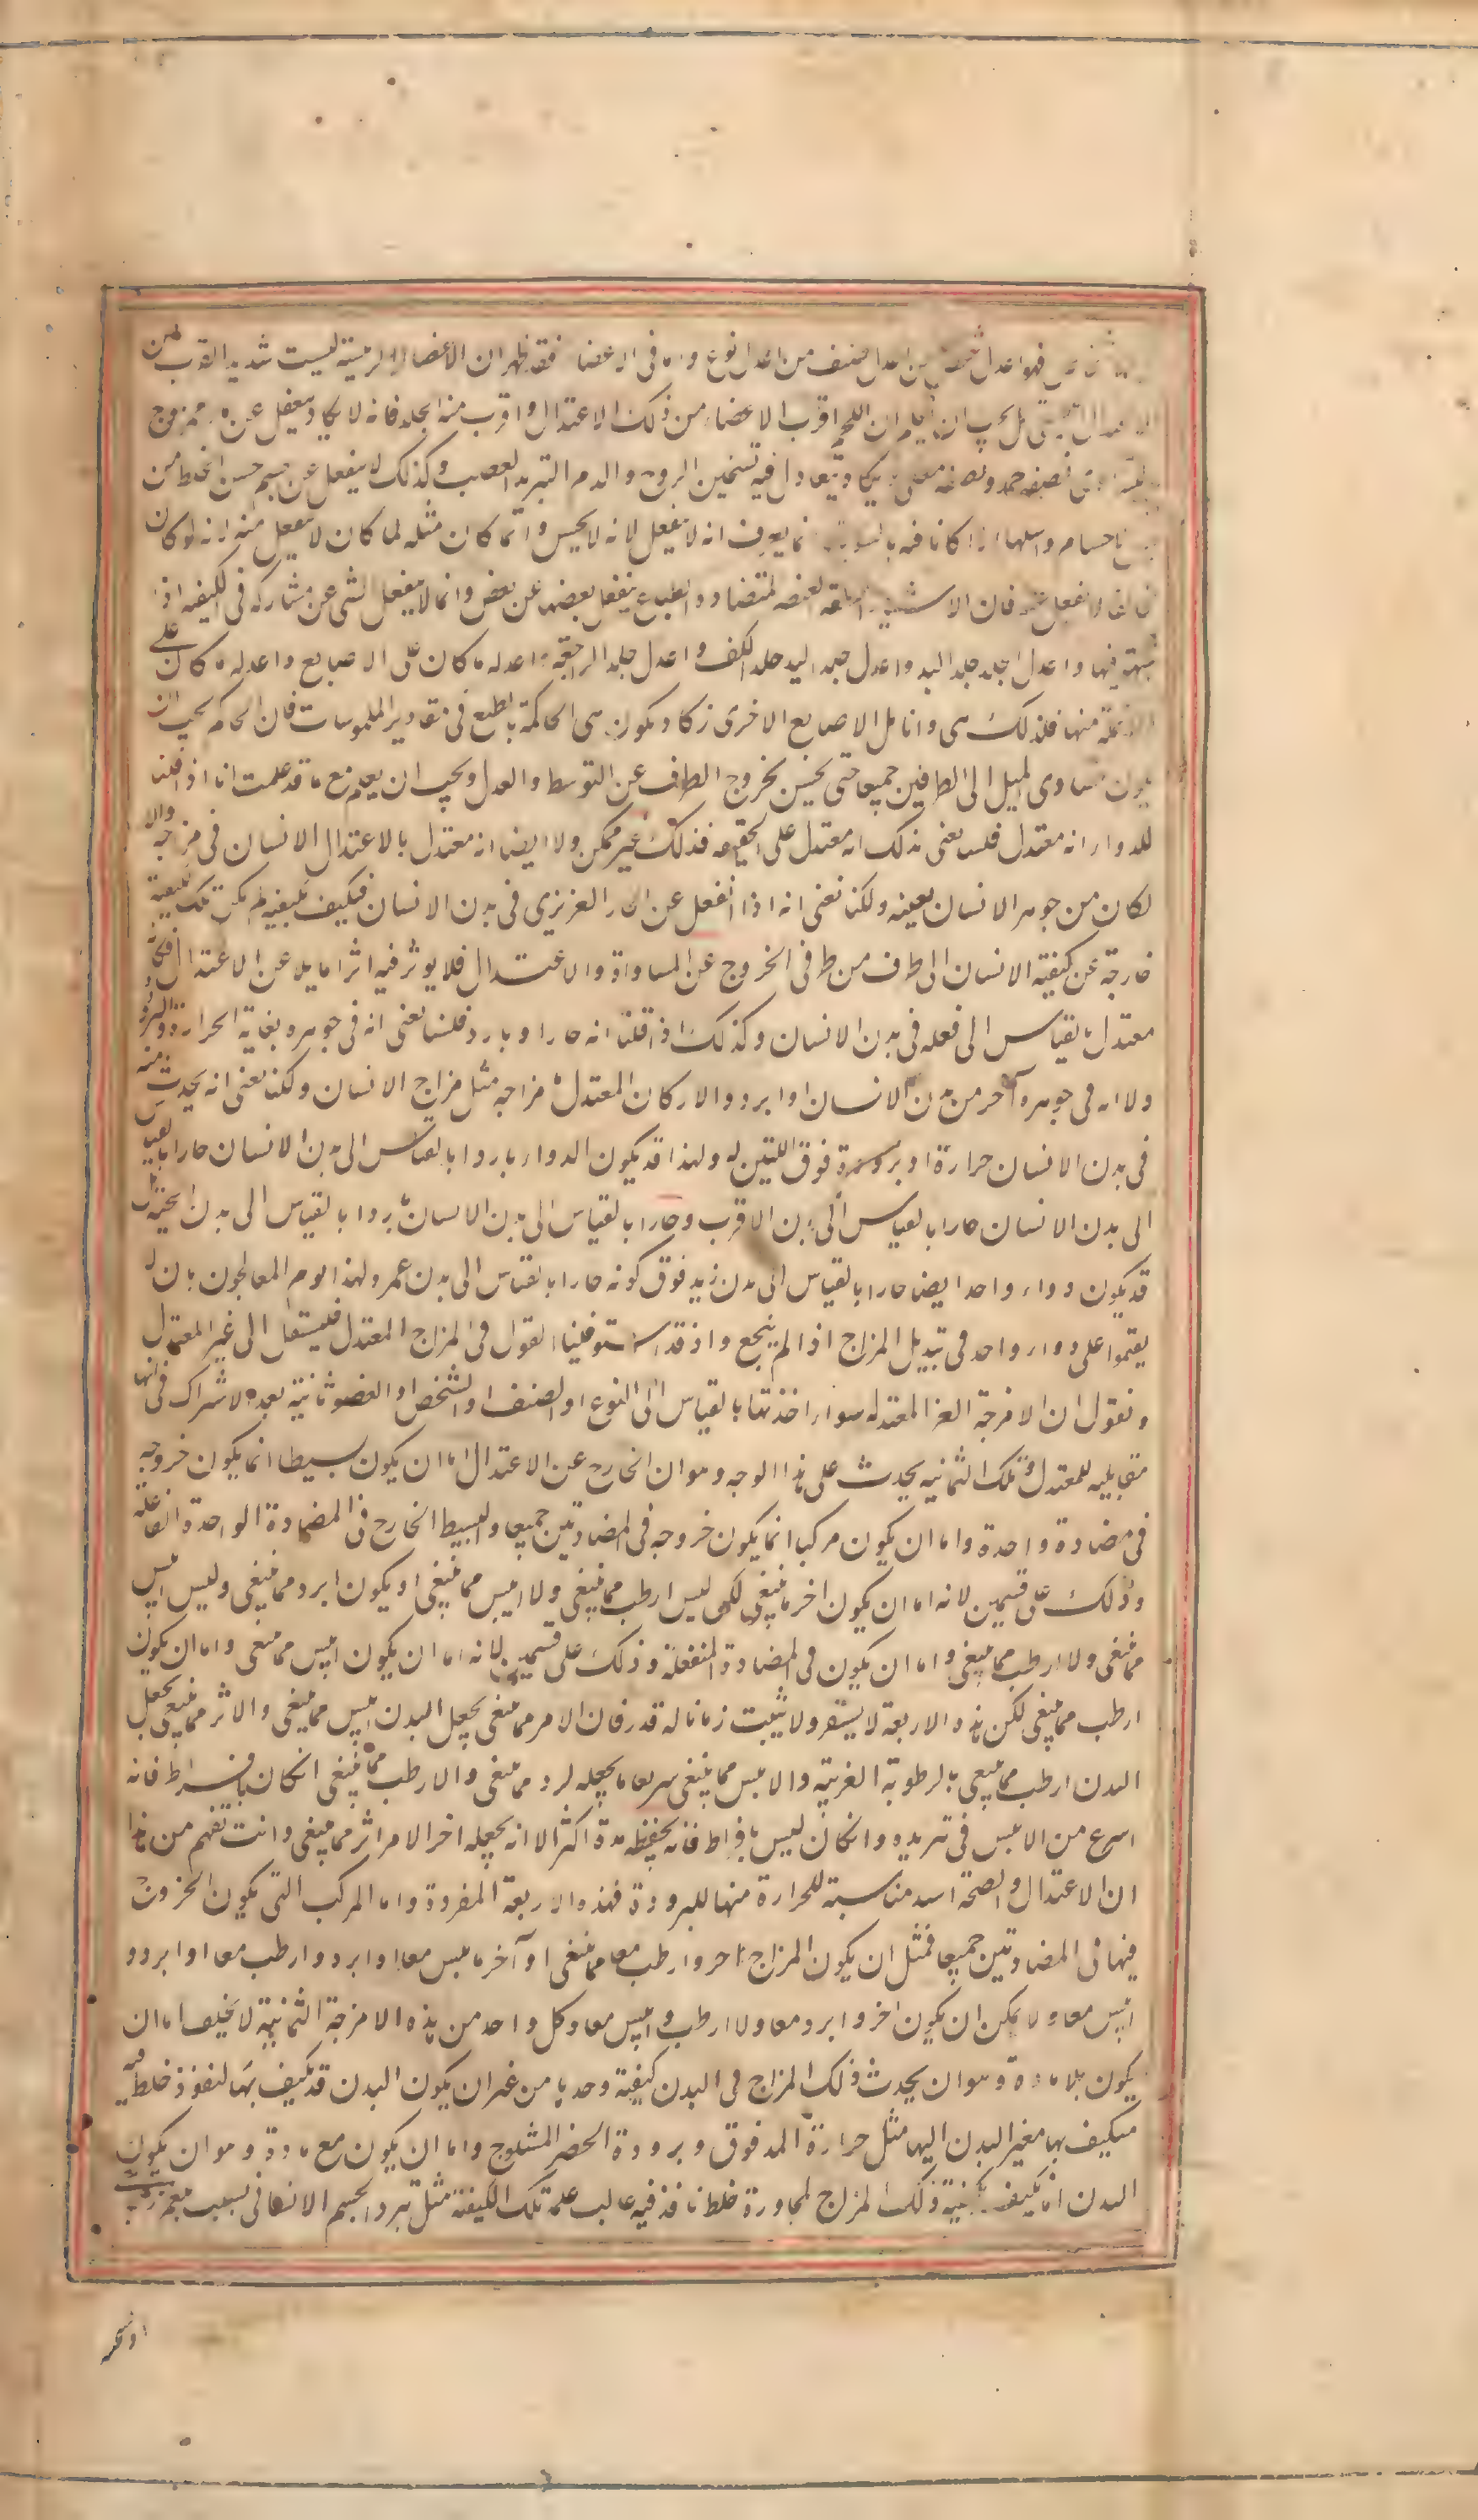 فهو اعدل شخص من اعدل صنف من اعدل نوع واما فى الاعضا فقد ظهر ان الاعضاء الرئيسة ليست شديدة القرب من
الاعتدال الحقيقى بل يجب ان يعلم ان اللحم اقرب الاعضاء من ذلك الاعتدال و اقرب منه الجلد فانه لا يكاد ينفعل عن ماء ممزوج
نصفه جمد ونصفه مغلى ويكاد يتعادل فيه تسخين الروح والدم التبريد العصب وكذلك لا ينفعل عن جسم حسن الخلط من
الاجسام واسيلها اذا كانا فيه بالسوية انما يعرف انه لا ينفعل لانه لا يحس وانما كان مثله لما كان لا ينفعل منه لانه لو كان
مخالفا لانفعل عنه فان الاشياء المتفقة العنصر المتضادة الطبايع ينفعل بعضها عن بعض وانما لا ينفعل الشى عن مشاركه فى الكيفيه اذا
شبهته فيها و اعدل الجلد جلد اليد واعدل جلد اليد جلد الكف و اعدل جلد الراحة و اعدله ما كان على الاصابع واعدله ما كان على
الانملة منها فلذلك هى وانامل الاصابع الاخرى تكاد يكون هى الحاكمة بالطبع فى مقادير الملموسات فان الحاكم يجب ان
يكون متساوى الميل الى الطرفين جميعا حتى يحس بخروج الطرف عن التوسط والعدل ويجب ان يعلم مع ما قد علمت انا اذا قلنا
للدواء انه معتدل فلسنا نعنى بذلك انه معتدل على الحقيقة فذلك غير ممكن ولا ايضا انه معتدل بالاعتدال الانسان فى مزاجه والا
لكان من جوهر الانسان بعينه ولكنا نعنى انه اذا انفعل عن الحار الغريزى فى بدن الانسان فيكيف بكيفية لم يكن تلك الكيفية
خارجة عن كيفية الانسان الى طرف من طرفى الخروج عن المساواة والاعتدال فلا يوثر فيه اثرا مايلا عن الاعتدال فكانه
معتدل بالقياس الى فعله فى بدن الانسان وكذلك اذا قلنا انه حار او بارد فلسنا نعنى انه فى جوهره بغاية الحرارة والبرودة
ولا انه فى جوهره آحر من بدن الانسان او ابرد والا لكان المعتدل ما مزاجه مثل مزاج الانسان ولكنا نعنى انه يحدث منه
فى بدن الانسان حرارة او برودة فوق اللتين له ولهذا قد يكون الدواء باردا بالقياس الى بدن الانسان حارا بالقياس
الى بدن الانسان حارا بالقياس الى بدن الاقرب وحارا بالقياس الى بدن الانسان باردا بالقياس الى بدن الحية بل
قد يكون دواء واحد ايضا حارا بالقياس الى بدن زيد فوق كونه حارا بالقياس الى بدن عمرو لهذا يومر المعالجون بان لا
يقيموا على دواء واحد فى تبديل المزاج اذا لم ينجع واذ قد استوفينا القول فى المزاج المعتدل فلينتقل الى غير المعتدل
ونقول ان الامزجة الغير المعتدلة سواء اخذتها بالقياس الى النوع او الصنف او الشخص او العضو ثمانية بعد الاشتراك فى انها
مقابلة للمعتدل وتلك الثمانيه يحدث على هذا الوجه وهو ان الخارج عن الاعتدال اما ان يكون بسيطا انما يكون خروجه
فى مضادة واحدة واما ان يكون مركبا انما يكون خروجه فى المضادتين جميعا والبسيط الخارج فى المضادة الواحدة الفاعلة
وذلك على قسمين لانه اما ان يكون احر مما ينبغى لكن ليس ارطب مما ينبغى ولا ايبس مما ينبغى او يكون ابرد مما ينبغى وليس ايبس
مما ينبغى ولا ارطب مما ينبغى واما ان يكون فى المضادة المنفعلة وذلك على قسمين لانه اما ان يكون ايبس مما ينبغى واما ان يكون
ارطب مما ينبغى لكن هذه الاربعة لا يستقر ولا يثبت زمانا له قدر فان الاحر مما ينبغى يجعل البدن ايبس مما ينبغى والابرد مما ينبغى يجعل
البدن ارطب مما ينبغى بالرطوبة الغريبة والايبس مما ينبغى سريعا ما يجعله ابرد مما ينبغى والارطب مما ينبغى ان كان بافراط فانه
اسرع من الايبس فى تبريده وان كان ليس بافراط فانه يحفظه مدة اكثر الا انه يجعله اخر الامر ابرد مما ينبغى وانت تفهم من هذا
ان الاعتدال والصحة اشد مناسبة للحرارة منها للبرودة فهذه الاربعة المفردة واما المركب التى يكون الخروج
فيها فى المضادتين جميعا فمثل ان يكون المزاج احر وارطب معا مما ينبغى او آحر وايبس معا او ابرد وارطب معا او ابرد و
ايبس معا ولا يمكن ان يكون احر وابرد معا ولا ارطب وايبس معا وكل واحد من هذه الامزجة الثمانية لا يخلو اما ان
يكون بلا مادة وهو ان يحدث ذلك المزاج فى البدن كيفية وحدها من غير ان يكون البدن قد تكيف بها لنفوذ خلط فيه
متكيف بها مغير البدن اليها مثل حرارة المدقوق وبرودة الخصر المثلوج واما ان يكون مع مادة وهو ان يكون
البدن انما تكيف بكيفية ذلك المزاج لمجاورة خلط نافذ فيه غالب عليه تلك الكيفية مثل تبرد الجسم الانسانى بسبب بلغم زجاجى